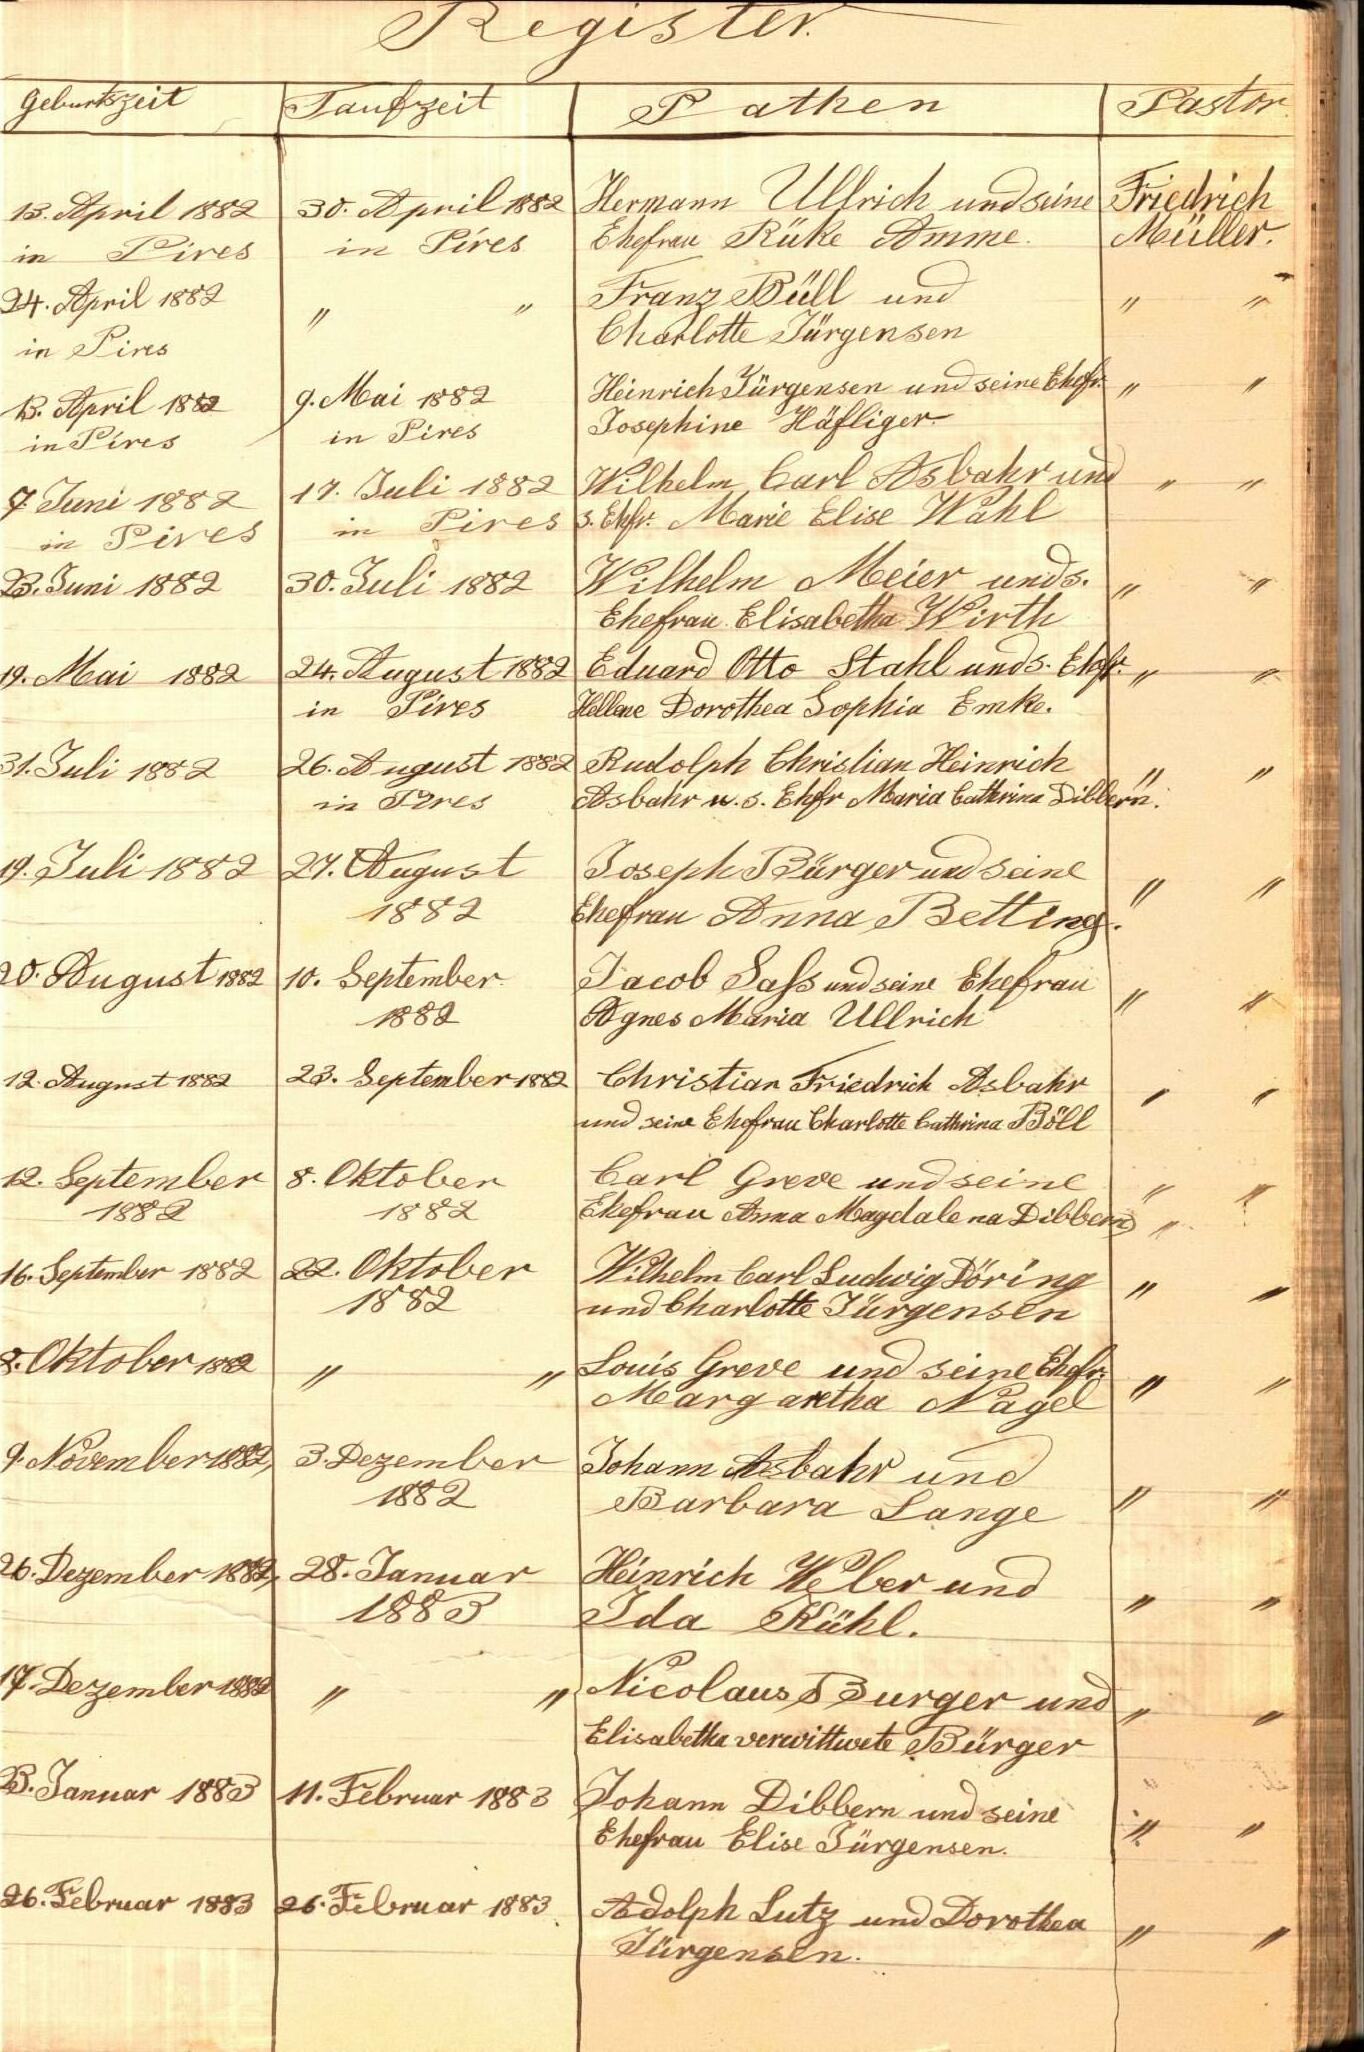 Register.
Geburtszeit Taufzeit Pathen Pastor
13. April 1882 30. April 1882 Hermann Ullrich und seine Friedrich
in Pires in Pires Ehefrau Rüke Amme. Müller.
24. April 1882 " " Franz Büll und " "
in Pires Charlotte Jürgensen
13. April 1882 9. Mai 1882 Heinrich Jürgensen und seine Ehefr. " "
in Pires in Pires Josephine Häfliger.
7. Juni 1882 17. Juli 1882 Wilhelm Carl Asbahr und " "
in Pires in Pires s. Ehfr. Marie Elise Wahl
23. Juni 1882 30. Juli 1882 Wilhelm Meier und s. " "
Ehefrau Elisabetha Wirth
19. Mai 1882 24. August 1882 Eduard Otto Stahl und s. Ehfr. " "
in Pires Hellene Dorothea Sophia Emke.
31. Juli 1882 26. August 1882 Rudolph Christian Heinrich " "
in Pires Asbahr u. s. Ehfr Maria Cathrina Dibbern.
19. Juli 1882 27. August Joseph Bürger und seine " "
1882 Ehefrau Anna Betting.
20. August 1882 10. September Jacob Saſs und seine Ehefrau " "
1882 Agnes Maria Ullrich
12. August 1882 23. September 1882 Christian Friedrich Asbahr " "
und seine Ehefrau Charlotte Cathrina Böll
12. September 8. Oktober Carl Greve und seine " "
1882 1882 Ehefrau Anna Magdalena Dibbern "
16. September 1882 22. Oktober Wilhelm Carl Ludwig Döring " "
1882 und Charlotte Jürgensen
8. Oktober 1882 " " Louis Greve und seine Ehefr. " "
Margaretha Nagel
9. November 1882, 3. Dezember Johann Asbahr und " "
1882 Barbara Lange
26. Dezember 1882, 28. Januar Heinrich Weber und " "
1883 Ida Kühl.
17. Dezember 1882 " " Nicolaus Burger und " "
Elisabetha verwittwete Bürger
23. Januar 1883 11. Februar 1883 Johann Dibbern und seine " "
Ehefrau Elise Jürgensen.
26. Februar 1883 26. Februar 1883. Adolph Lutz und Dorothea " "
Jürgensen.